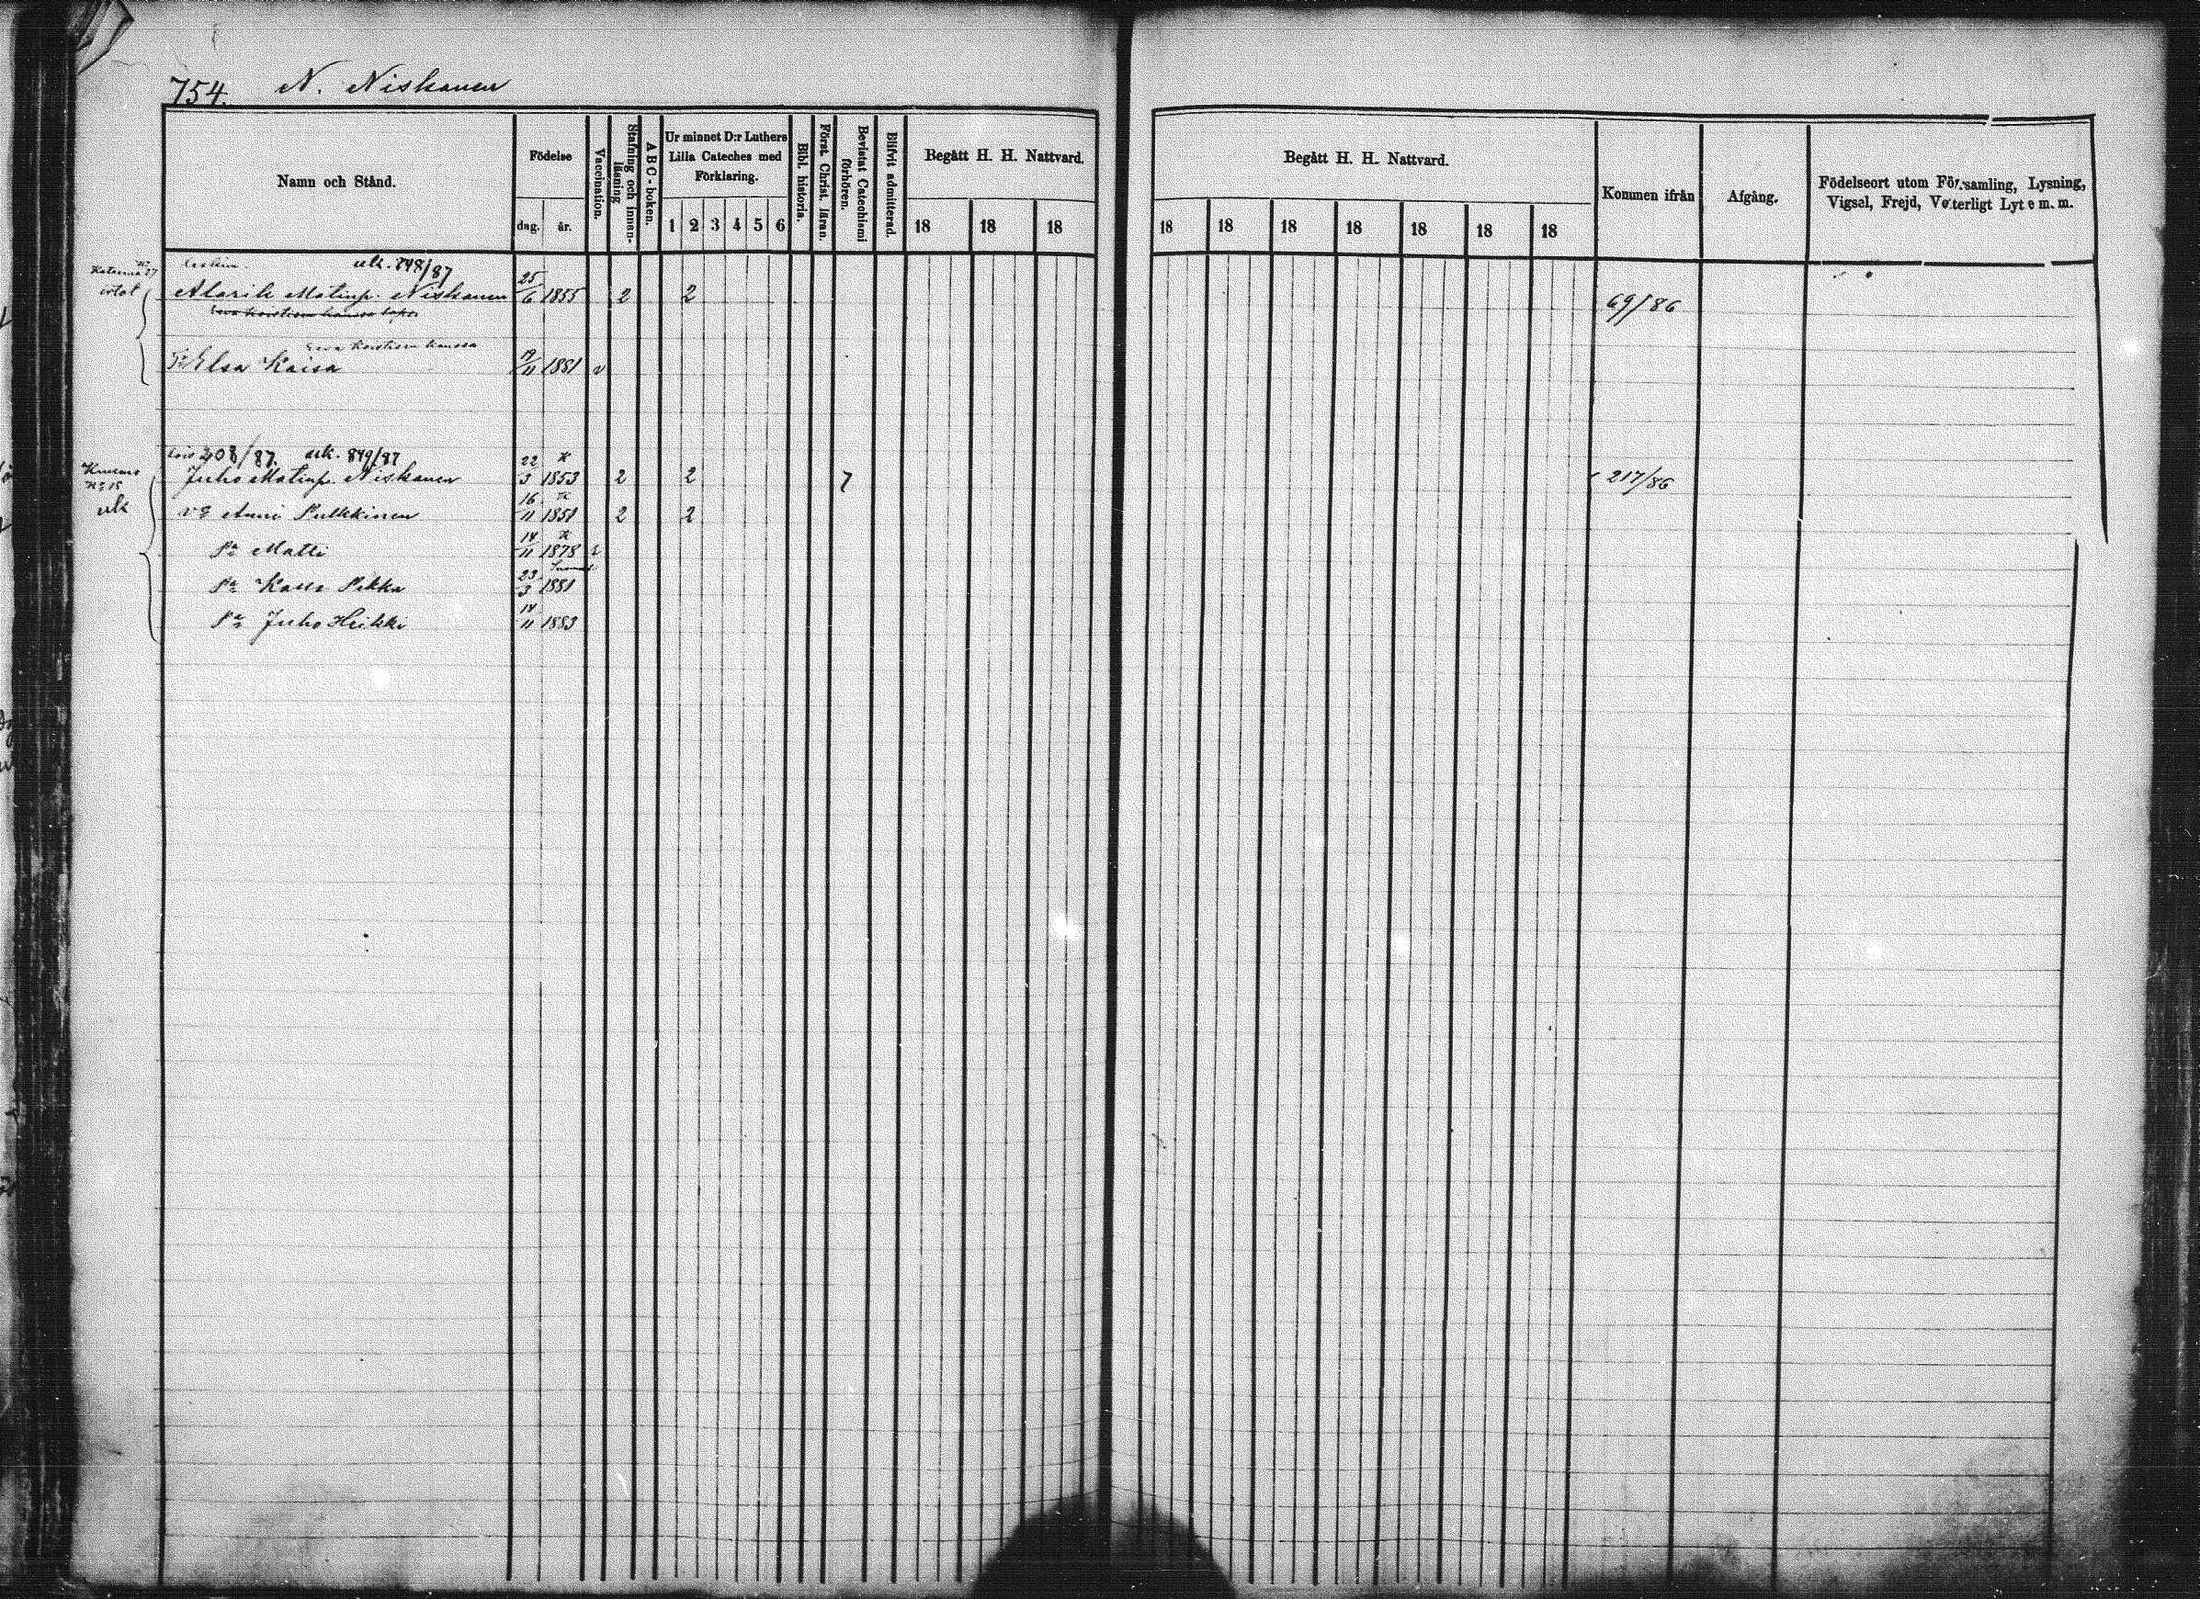 754. N. Niskanen
Namn och Stånd.
Födelse
dag. år.
Vaccination.
Stafning och innan-läsning
ABC-boken.
Ur minnet D:r Luthers
Lilla Cateches med
Förklaring.
1 2 3 4 5 6
Bibl. historia.
Först. Christ. läran.
Bevistat Catechismi förhören.
Blifvit admitterad.
Begått H. H. Nattvard.
18 18 18
Begått H. H. Nattvard.
18 18 18 18 18 18 18
Kommen ifrån
Afgång.
Födelseort utom Församling, Lysning,
Vigsel, Frejd, Veterligt Lyte m. m.
Leskin. ulk. 848/87
Alarik Matinp. Niskanen 25/6 1855 2 2 69/86
Elsa Kaisa 19/11 1881 v
208/87. ulk. 849/87
Juho Matinp. Niskanen 22/3 1853 2 2 7 217/86
ulk
Anni Pulkkinen 16/11 1851 2 2
Matti 14/11 1878 v
Kalle Pekka 23/3 1881
Juho Heikki 14/11 1883